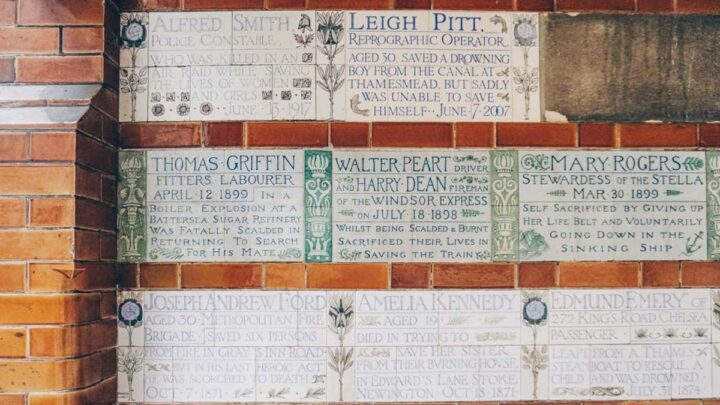 ALFRED SMITH
POLICE CONSTABLE
WHO WAS KILLED IN AN
AIR RAID WHILE SAVING
THE LIVES OF WOMEN
AND GIRLS
· JUNE · 13 · 1917
LEIGH PITT.
REPROGRAPHIC OPERATOR.
AGED 30, SAVED A DROWNING
BOY FROM THE CANAL AT
THAMESMEAD, BUT SADLY
WAS UNABLE TO SAVE
HIMSELF · JUNE · 7 · 2007
THOMAS · GRIFFIN
FITTERS LABOURER
APRIL · 12 · 1899 IN A
BOILER EXPLOSION AT A
BATTERSEA SUGAR REFINERY
WAS FATALLY SCALDED IN
RETURNING TO SEARCH
FOR HIS MATE
WALTER · PEART DRIVER
AND HARRY · DEAN FIREMAN
OF THE WINDSOR EXPRESS
ON JULY 18 · 1898
WHILST BEING SCALDED & BURNT
SACRIFICED THEIR LIVES IN
SAVING THE TRAIN
MARY ROGERS
STEWARDESS OF THE STELLA
MAR 30 · 1899
SELF SACRIFICED BY GIVING UP
HER LIFE BELT AND VOLUNTARILY
GOING DOWN IN THE
SINKING SHIP
JOSEPH ANDREW FORD
AGED 30 · METROPOLITAN FIRE
BRIGADE · SAVED SIX PERSONS
FROM FIRE IN GRAYS INN ROAD
BUT IN HIS LAST HEROIC ACT
HE WAS SCORCHED TO DEATH
OCT · 7 · 1871
AMELIA KENNEDY
AGED 19
DIED IN TRYING TO
SAVE HER SISTER
FROM THEIR BURNING HOUSE
IN EDWARD'S LANE STOKE
NEWINGTON OCT 18 1871
EDMUND EMERY OF
KING'S ROAD CHELSEA
PASSENGER
LEAPT FROM A THAMES
STEAMBOAT TO RESCUE A
CHILD AND WAS DROWNED
JULY 31 1874